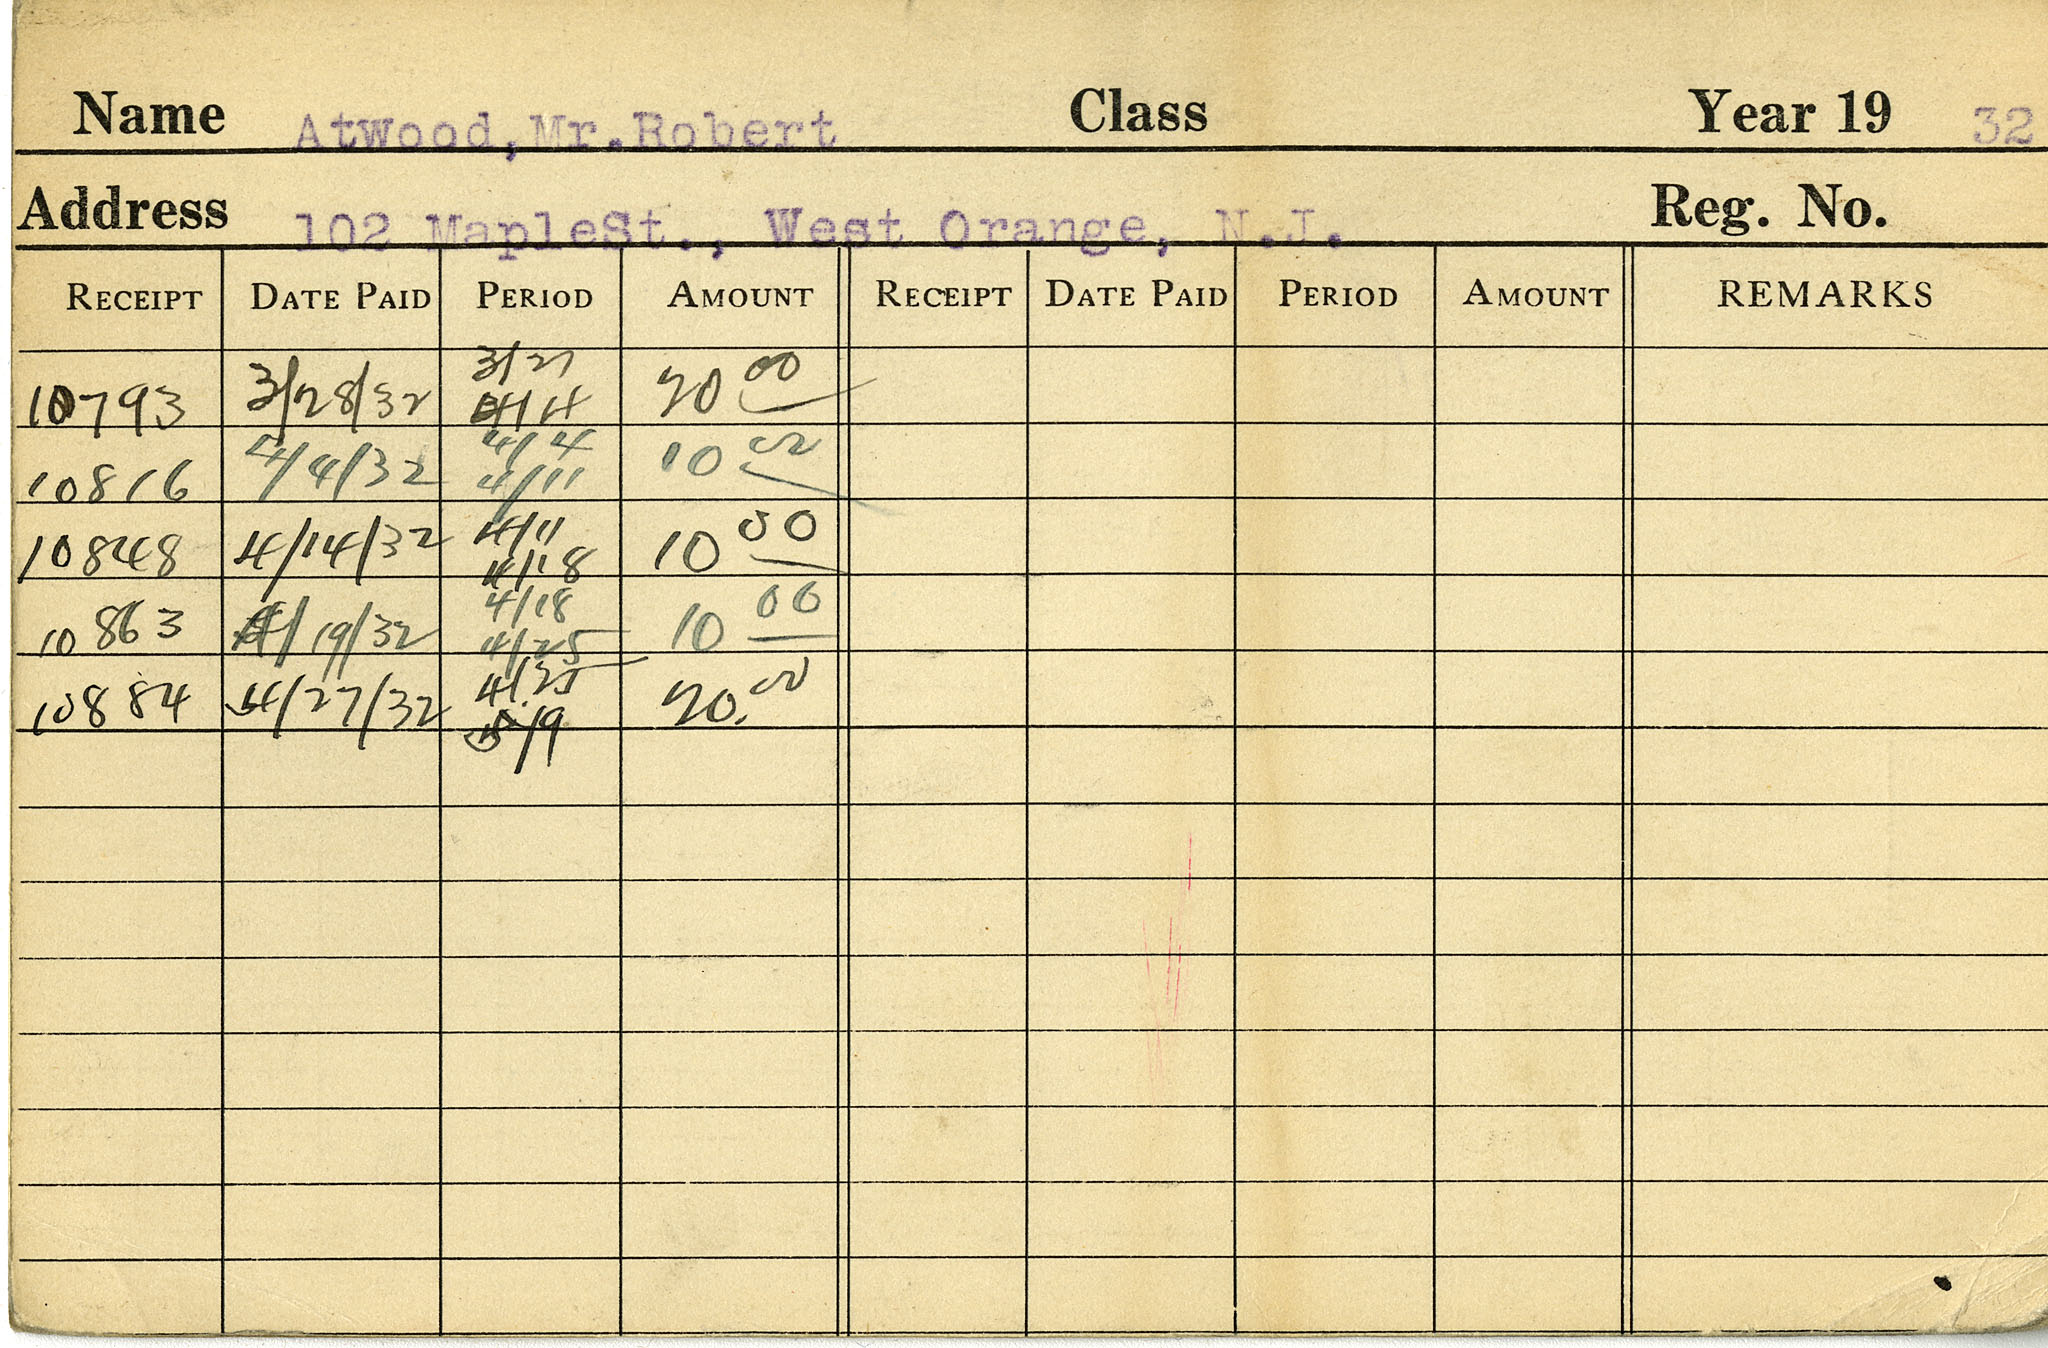 Name Atwood, Mr. Robert Class Year 19 32
Address 102 MapleSt., West Orange, N.J. Reg. No.
RECEIPT DATE PAID PERIOD AMOUNT RECEIPT DATE PAID PERIOD AMOUNT REMARKS
3/21
10793 3/28/32 4/4 20 00
4/4
10816 4/4/32 4/11 10 00
4/11
10848 4/14/32 4/18 10 00
4/18
10863 4/19/32 4/25 10 00
4/25
10884 4/27/32 5/9 20.00